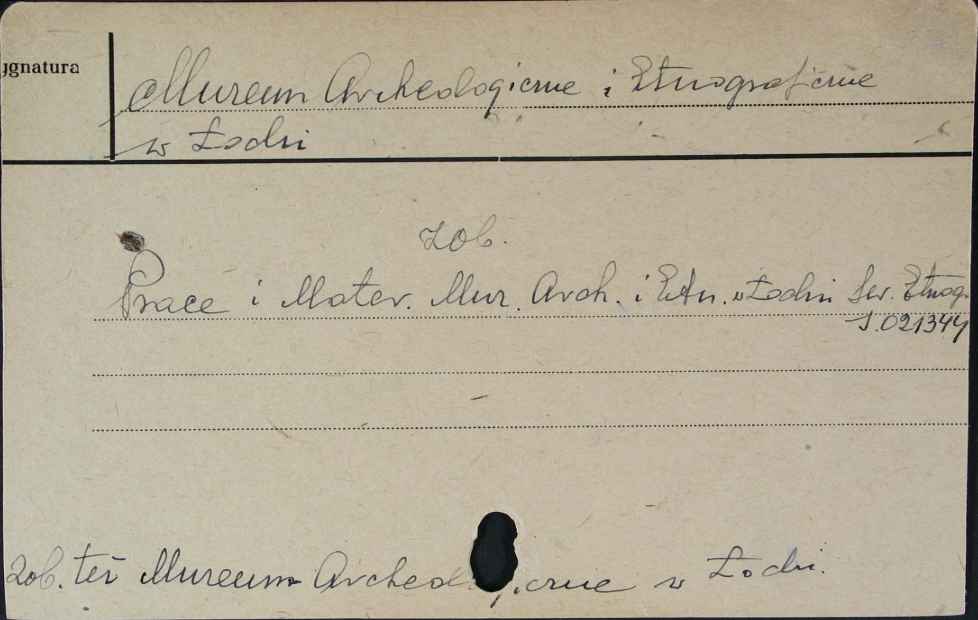 ygnatura
Muzeum Archeologiczne i Etnograficzne
w Łodzi
zob.
Prace i Mater. Muz. Arch. i Etn. w Łodzi Ser. Etnogr
J.021344
Zob. też Muzeum Archeologiczne w Łodzi.